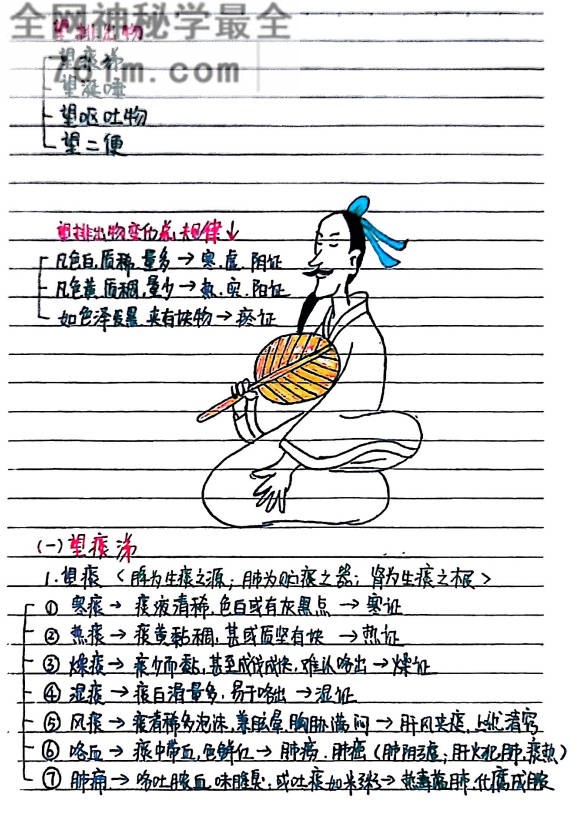 全网神秘学最全
望排出物
望痰涕
761m.com
望涎唾
望呕吐物
望二便
望排出物变化总规律↓
凡色白,质稀,量多→寒.虚.阴证
凡色黄,质稠,量少→热.实.阳证
如色泽发黑,夹有块物→瘀证
(一)望痰涕
1.望痰〈脾为生痰之源;肺为贮痰之器;肾为生痰之根〉
① 寒痰→痰液清稀,色白或有灰黑点→寒证
② 热痰→痰黄黏稠,甚或质坚有块→热证
③ 燥痰→痰少而黏,甚至成线成块,难以咯出→燥证
④ 湿痰→痰白滑量多,易于咯出→湿证
⑤ 风痰→痰清稀多泡沫,兼眩晕,胸胁满闷→肝风夹痰,上扰清窍
⑥ 咯血→痰中带血,色鲜红→肺痨.肺癌(肺阴虚;肝火犯肺,痰热)
⑦ 肺痈→咯吐脓血,味腥臭,或吐痰如米粥→热毒蕴肺,化腐成脓